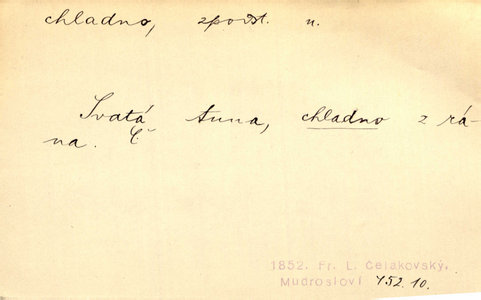 chladno, zpodst. n.
Svatá Anna, chladno z rá-
na. Č
1852. Fr. L. Čelakovský,
Mudrosloví 452.10.